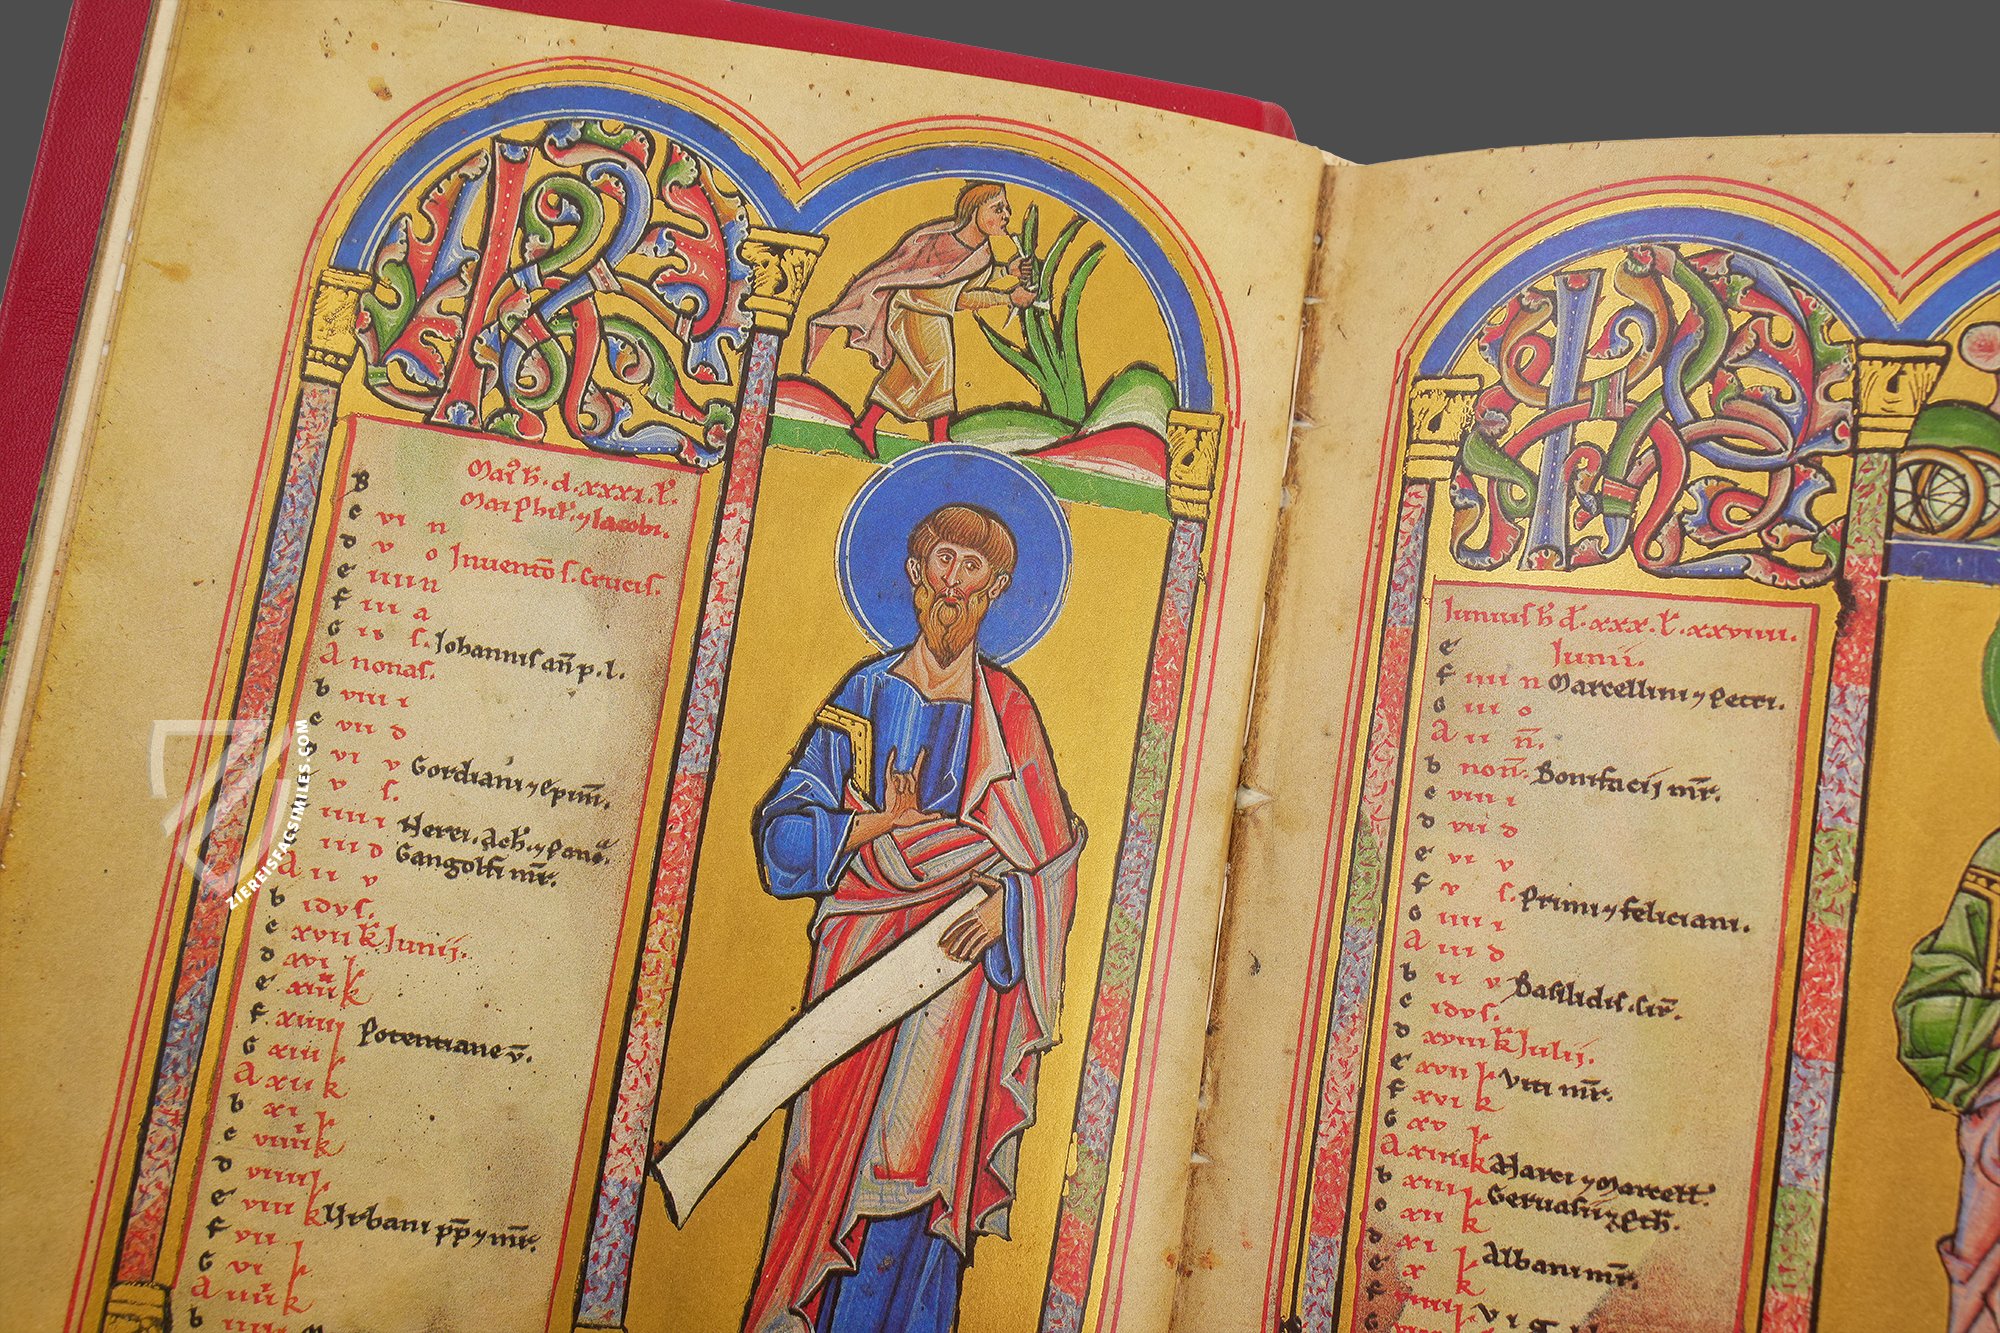 KL
B
Mai᷒ h̄. d. xxxi. l᷒.
Mai Phil᷒. ⁊ Iacobi.
c vi n
d v o Inuentō s. Crucis.
e iiii n
f iii a
G ii s. Johannis an̄ p. l.
A nonas.
b viii i
c vii d
vi v Gordiani ⁊ Epim̄.
v s.
f iiii i Nerei. Ach᷒. ⁊ Panc̄.
iii d Gangolfi mr̄.
A ii v
b idvs.
c xvii k Junij.
d xvi k
e xv k
f xiiii k Potentiane v̄.
G xiii k
A xii k
b xi k
c x k
d viiii k
e viii k Urbani pp̄ ⁊ mr̄.
f vii k
G vi k
A v k
b iiii
KL
Junius h̄ d᷒. xxx. l᷒. xxviiii.
e Junii.
f iiii n Marcellini ⁊ Petri.
G iii o
A ii n̄.
b non̄. Bonifacij mr̄.
c viii i
d vii d
e vi v
f v s. Primi ⁊ feliciani.
G iiii i
A iii d
b ii v Basilidis. cir̄.
c idvs.
d xviii k Julij.
e xvii k Viti mr̄.
f xvi k
G xv k
A xiiii k Marci ⁊ Marcell᷒.
b xiii k Geruasii ⁊ Ꝓth᷒.
c xii k
d xi k Albani mr̄.
e x k
f viiii k Vigil
G
ZIEREISFACSIMILES.COM